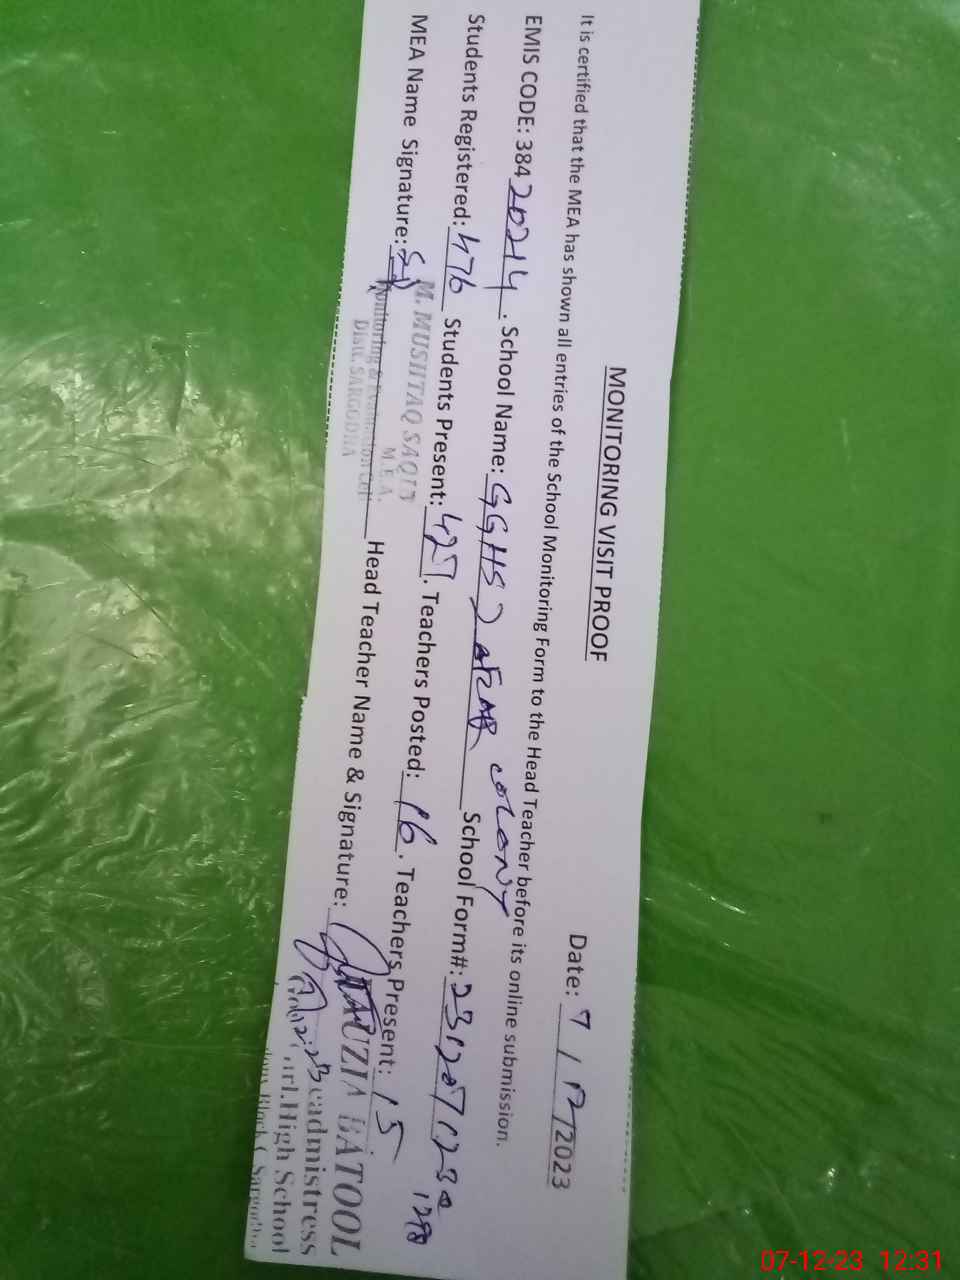 MONITORING VISIT PROOF
Date: 7 / 12/2023
It is certified that the MEA has shown all entries of the School Monitoring Form to the Head Teacher before its online submission.
EMIS CODE: 38420214. School Name: GGHS 2 AFZAL COLONY School Form#:
Students Registered: 476 Students Present: 427. Teachers Posted: 16. Teachers Present: 15
MEA Name Signature: Head Teacher Name & Signature:
M. MUSHTAQ SAQIB
M.E.A.
Monitoring & Evaluation Cell
Distt. SARGODHA
FAUZIA BATOOL
Headmistress
Girl.High School
Block C Sargodha
07-12-23 12:31